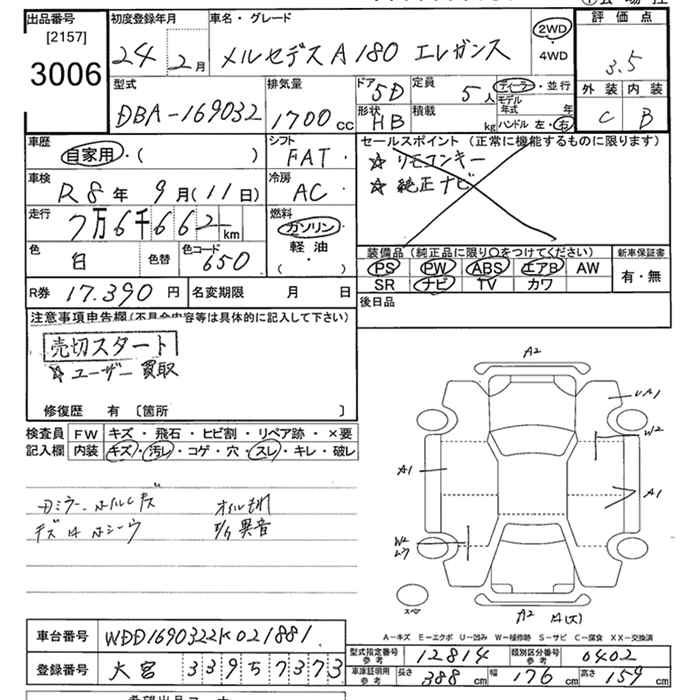 出品番号
[2157]
3006
初度登録年月
24年2月
車名・グレード
メルセデス A180 エレガンス
2WD
・
4WD
評価点
3.5
外装 内装
C B
型式
DBA-169032
排気量
1700cc
ドア
5D
定員
5人
形状
HB
積載
kg
ディーラー・並行
モデル年式 年
ハンドル 左・右
車歴
自家用・( )
シフト
FAT
セールスポイント (正常に機能するものに限ります)
☆ リモコンキー
☆ 純正ナビ
車検
R8年9月(11日)
冷房
AC
走行
7万6千662km
燃料
ガソリン・
軽油・
( )
色
白
色替
色コード
650
装備品 (純正品に限り○をつけてください)
PS PW ABS エアB AW
SR ナビ TV カワ
新車保証書
有・無
R券 17.390円
名変期限 月 日
後日品
注意事項申告欄(不具合内容等は具体的に記入して下さい)
売切スタート
☆ユーザー買取
修復歴 有 [箇所 ]
検査員記入欄
FW キズ・飛石・ヒビ割・リペア跡・×要
内装 キズ・汚レ・コゲ・穴・スレ・キレ・破レ
オイルもれ
異音
A2
UA1
W2
A1
A1
W2
スペア
A2
A-キズ E-エクボ U-凹み W-補修跡 S-サビ C-腐食 XX-交換済
車台番号 WDD1690322K021881
型式指定番号参考 12814
類別区分番号参考 0402
登録番号 大宮 339 57373
車庫証明用参考 長さ 388cm 幅 176cm 高さ 159cm